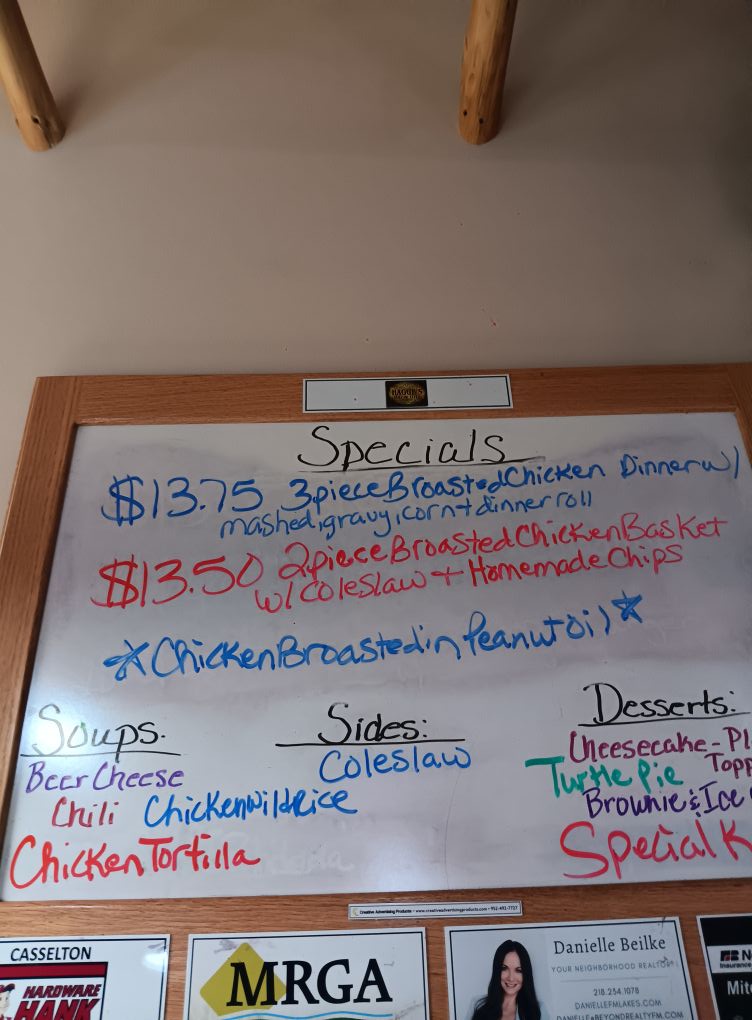 Specials
$13.75 3 piece Broasted Chicken Dinner w/
mashed, gravy, corn + dinner roll
$13.50 2 piece Broasted Chicken Basket
w/ Coleslaw + Homemade Chips
*Chicken Broasted in Peanut Oil*
Soups: Sides: Desserts:
Beer Cheese Coleslaw Cheesecake-Pl
Chili Chicken Wild Rice Turtle Pie Topp
Brownie & Ice
Chicken Tortilla Special K
Creative Advertising Products • www.creativeadvertisingproducts.com • 952-492-7727
CASSELTON
HARDWARE
HANK
MRGA
Danielle Beilke
YOUR NEIGHBORHOOD REALTOR®
218.234.1078
DANIELLEFMLAKES.COM
DANIELLE@BEYONDREALTYFM.COM
Insurance